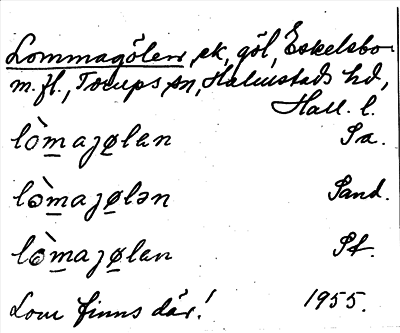 Lommagölen, sk, göl, Eskelsbo
m. fl., Torups sn, Halmstads hd,
Hall. l.
lòmajølan Sa.
lòmajøløn Sand.
lòmajølan St.
Lom finns där! 1955.